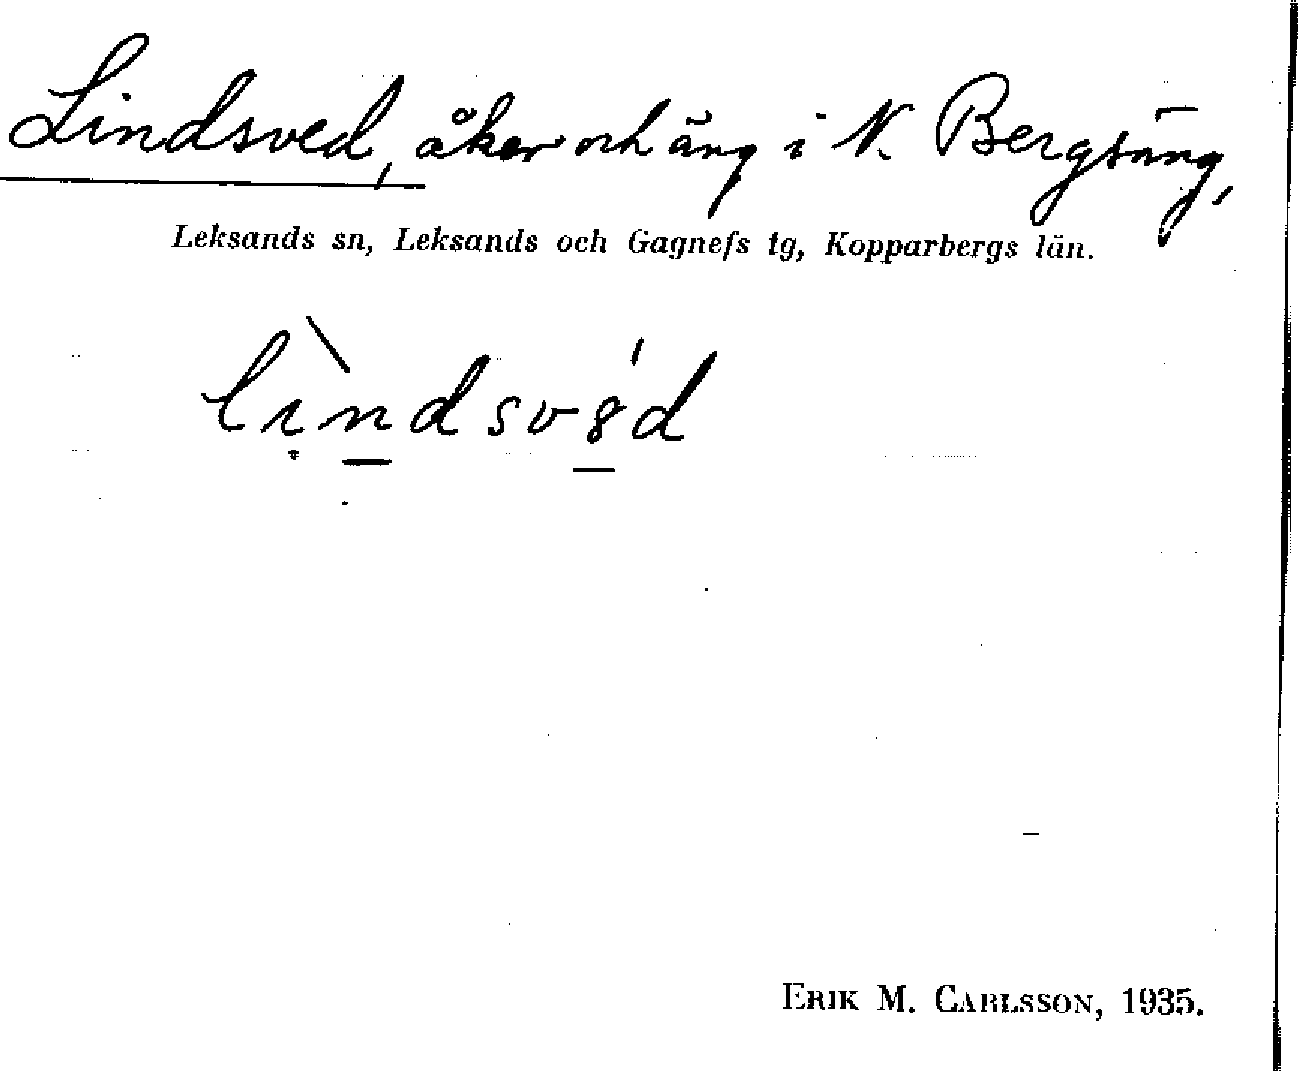 Lindsved, åker och äng i N. Bergsäng,
Leksands sn, Leksands och Gagnefs tg, Kopparbergs län.
lìndsvd
ERIK M. CARLSSON, 1935.